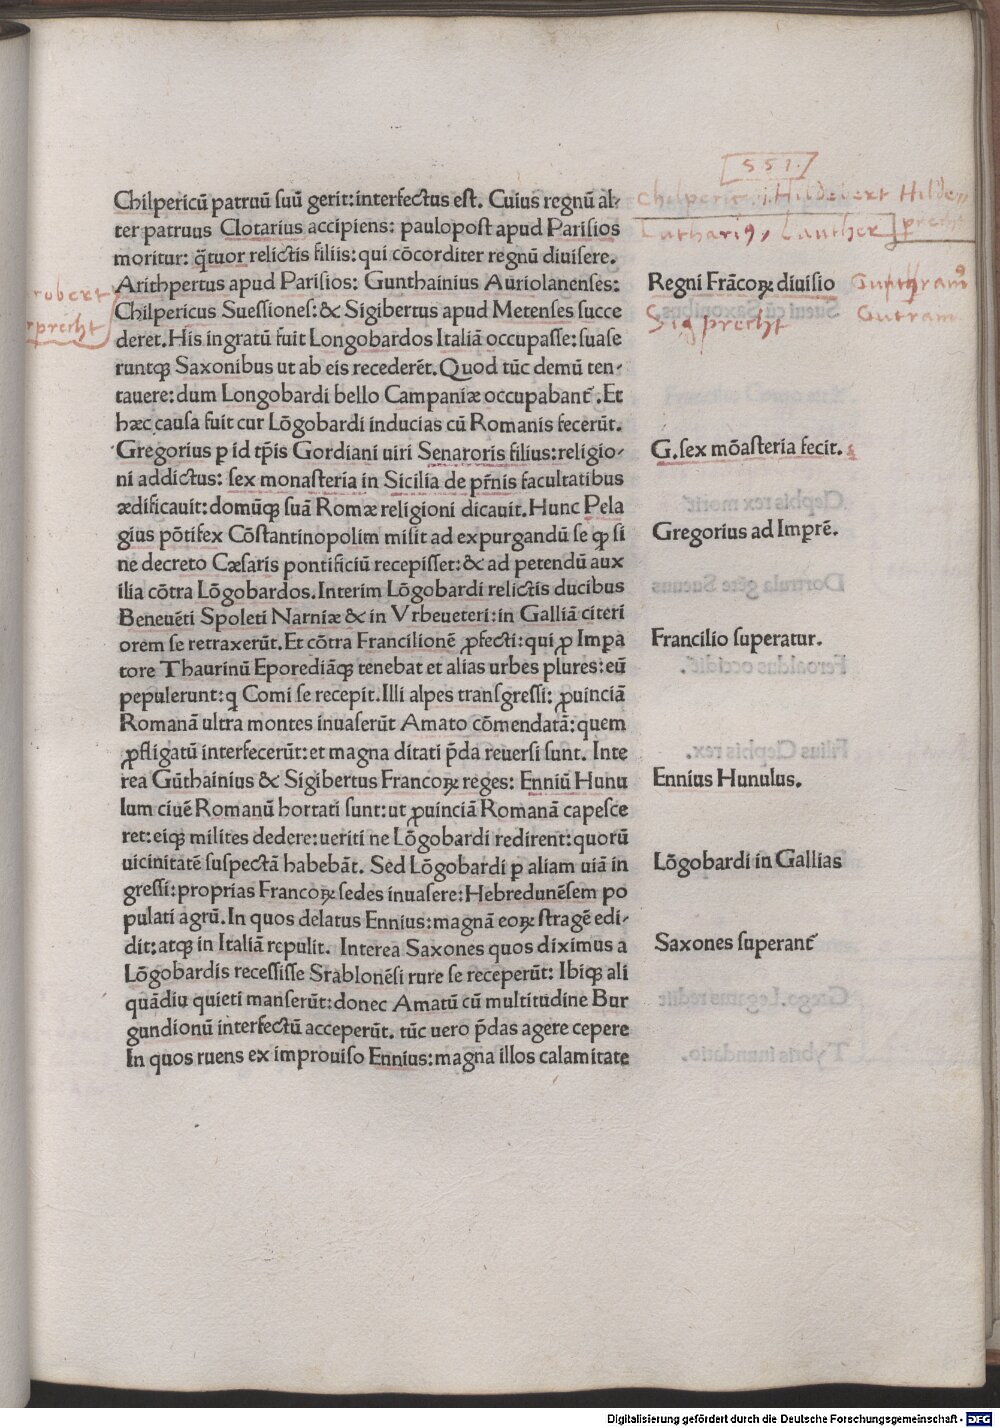 551.
Chilperic Hildebert Hilde
precht
Luthariꝰ, Lauther
Chilpericū patruū suū gerit: interfectus est. Cuius regnū al-
ter patruus Clotarius accipiens: paulopost apud Parisios
moritur: q̄tuor relictis filiis: qui cōcorditer regnū diuisere.
Arithpertus apud Parisios: Gunthainius Auriolanenses:
Chilpericus Suessiones: & Sigibertus apud Metenses succe
deret. His ingratū fuit Longobardos Italiā occupasse: suase
runtqꝫ Saxonibus ut ab eis recederēt. Quod tūc demū ten-
tauere: dum Longobardi bello Campaniæ occupabant᷑. Et
hæc causa fuit cur Lōgobardi inducias cū Romanis fecerūt.
Gregorius p id tp̄is Gordiani uiri Senaroris filius: religio-
ni addictus: sex monasteria in Sicilia de pr̄nis facultatibus
ædificauit: domūqꝫ suā Romæ religioni dicauit. Hunc Pela
gius pōtifex Cōstantinopolim misit ad expurgandū se qꝫ si
ne decreto Cæsaris pontificiū recepisset: & ad petendū aux
ilia cōtra Lōgobardos. Interim Lōgobardi relictis ducibus
Beneuēti Spoleti Narniæ & in Vrbeueteri: in Galliā citeri
orem se retraxerūt. Et cōtra Francilionē ꝓfecti: qui ꝓ Impa
tore Thaurinū Eporediāqꝫ tenebat et alias urbes plures: eū
pepulerunt: q Comi se recepit. Illi alpes transgressi: ꝓuinciā
Romanā ultra montes inuaserūt Amato cōmendatā: quem
ꝓfligatū interfecerūt: et magna ditati p̄da reuersi sunt. Inte
rea Gūthainius & Sigibertus Francoꝝ reges: Enniū Hunu
lum ciuē Romanū hortati sunt: ut ꝓuinciā Romanā capesce
ret: eiqꝫ milites dedere: ueriti ne Lōgobardi redirent: quorū
uicinitatē suspectā habebāt. Sed Lōgobardi p aliam uiā in
gressi: proprias Francoꝝ sedes inuasere: Hebredunēsem po
pulati agrū. In quos delatus Ennius: magnā eoꝝ stragē edi-
dit: atqꝫ in Italiā repulit. Interea Saxones quos diximus a
Lōgobardis recessisse Srablonēsi rure se receperūt: Ibiqꝫ ali
quādiu quieti manserūt: donec Amatū cū multitudine Bur
gundionū interfectū acceperūt. tūc uero p̄das agere cepere
In quos ruens ex improuiso Ennius: magna illos calamitate
robert
rprecht
Regni Frācoꝝ diuisio
Gunthramꝰ
Sigprecht
Gutram
G. sex mōasteria fecit.
Gregorius ad Imprē.
Francilio superatur.
Ennius Hunulus.
Lōgobardi in Gallias
Saxones superant᷑
Digitalisierung gefördert durch die Deutsche Forschungsgemeinschaft - DFG